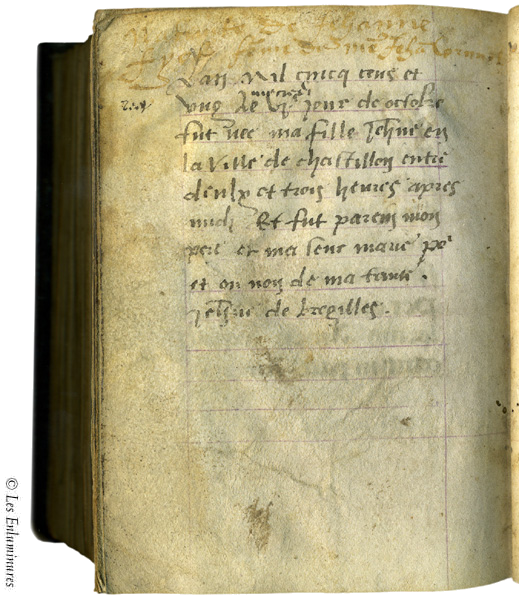 De Jehanne
Lan Mil cincq cens et
ung le vje jour de octobre
mercredi
fut nee ma fille Jehanne en
la ville de chastillon entre
deulx et trois heures apres
midi Et fut parein mon
pere et ma seur marie
et on non de ma tante
Jehanne de bregilles.
© Les Enluminures